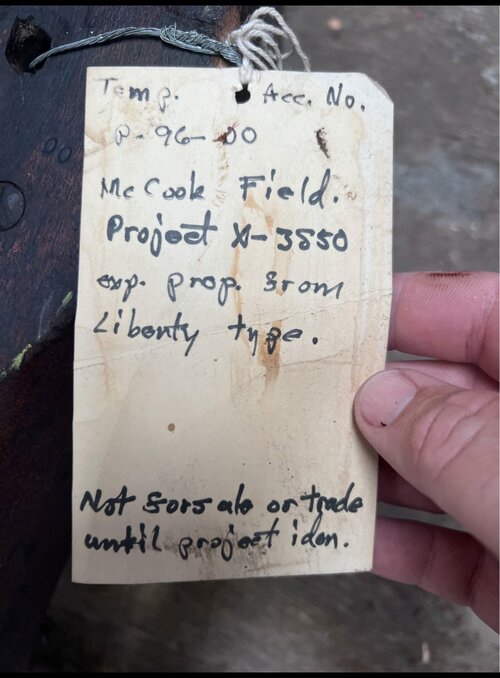 Temp. Acc. No.
P-96-00
McCook Field.
Project X-3550
exp. prop. from
Liberty type.
Not for sale or trade
until project iden.